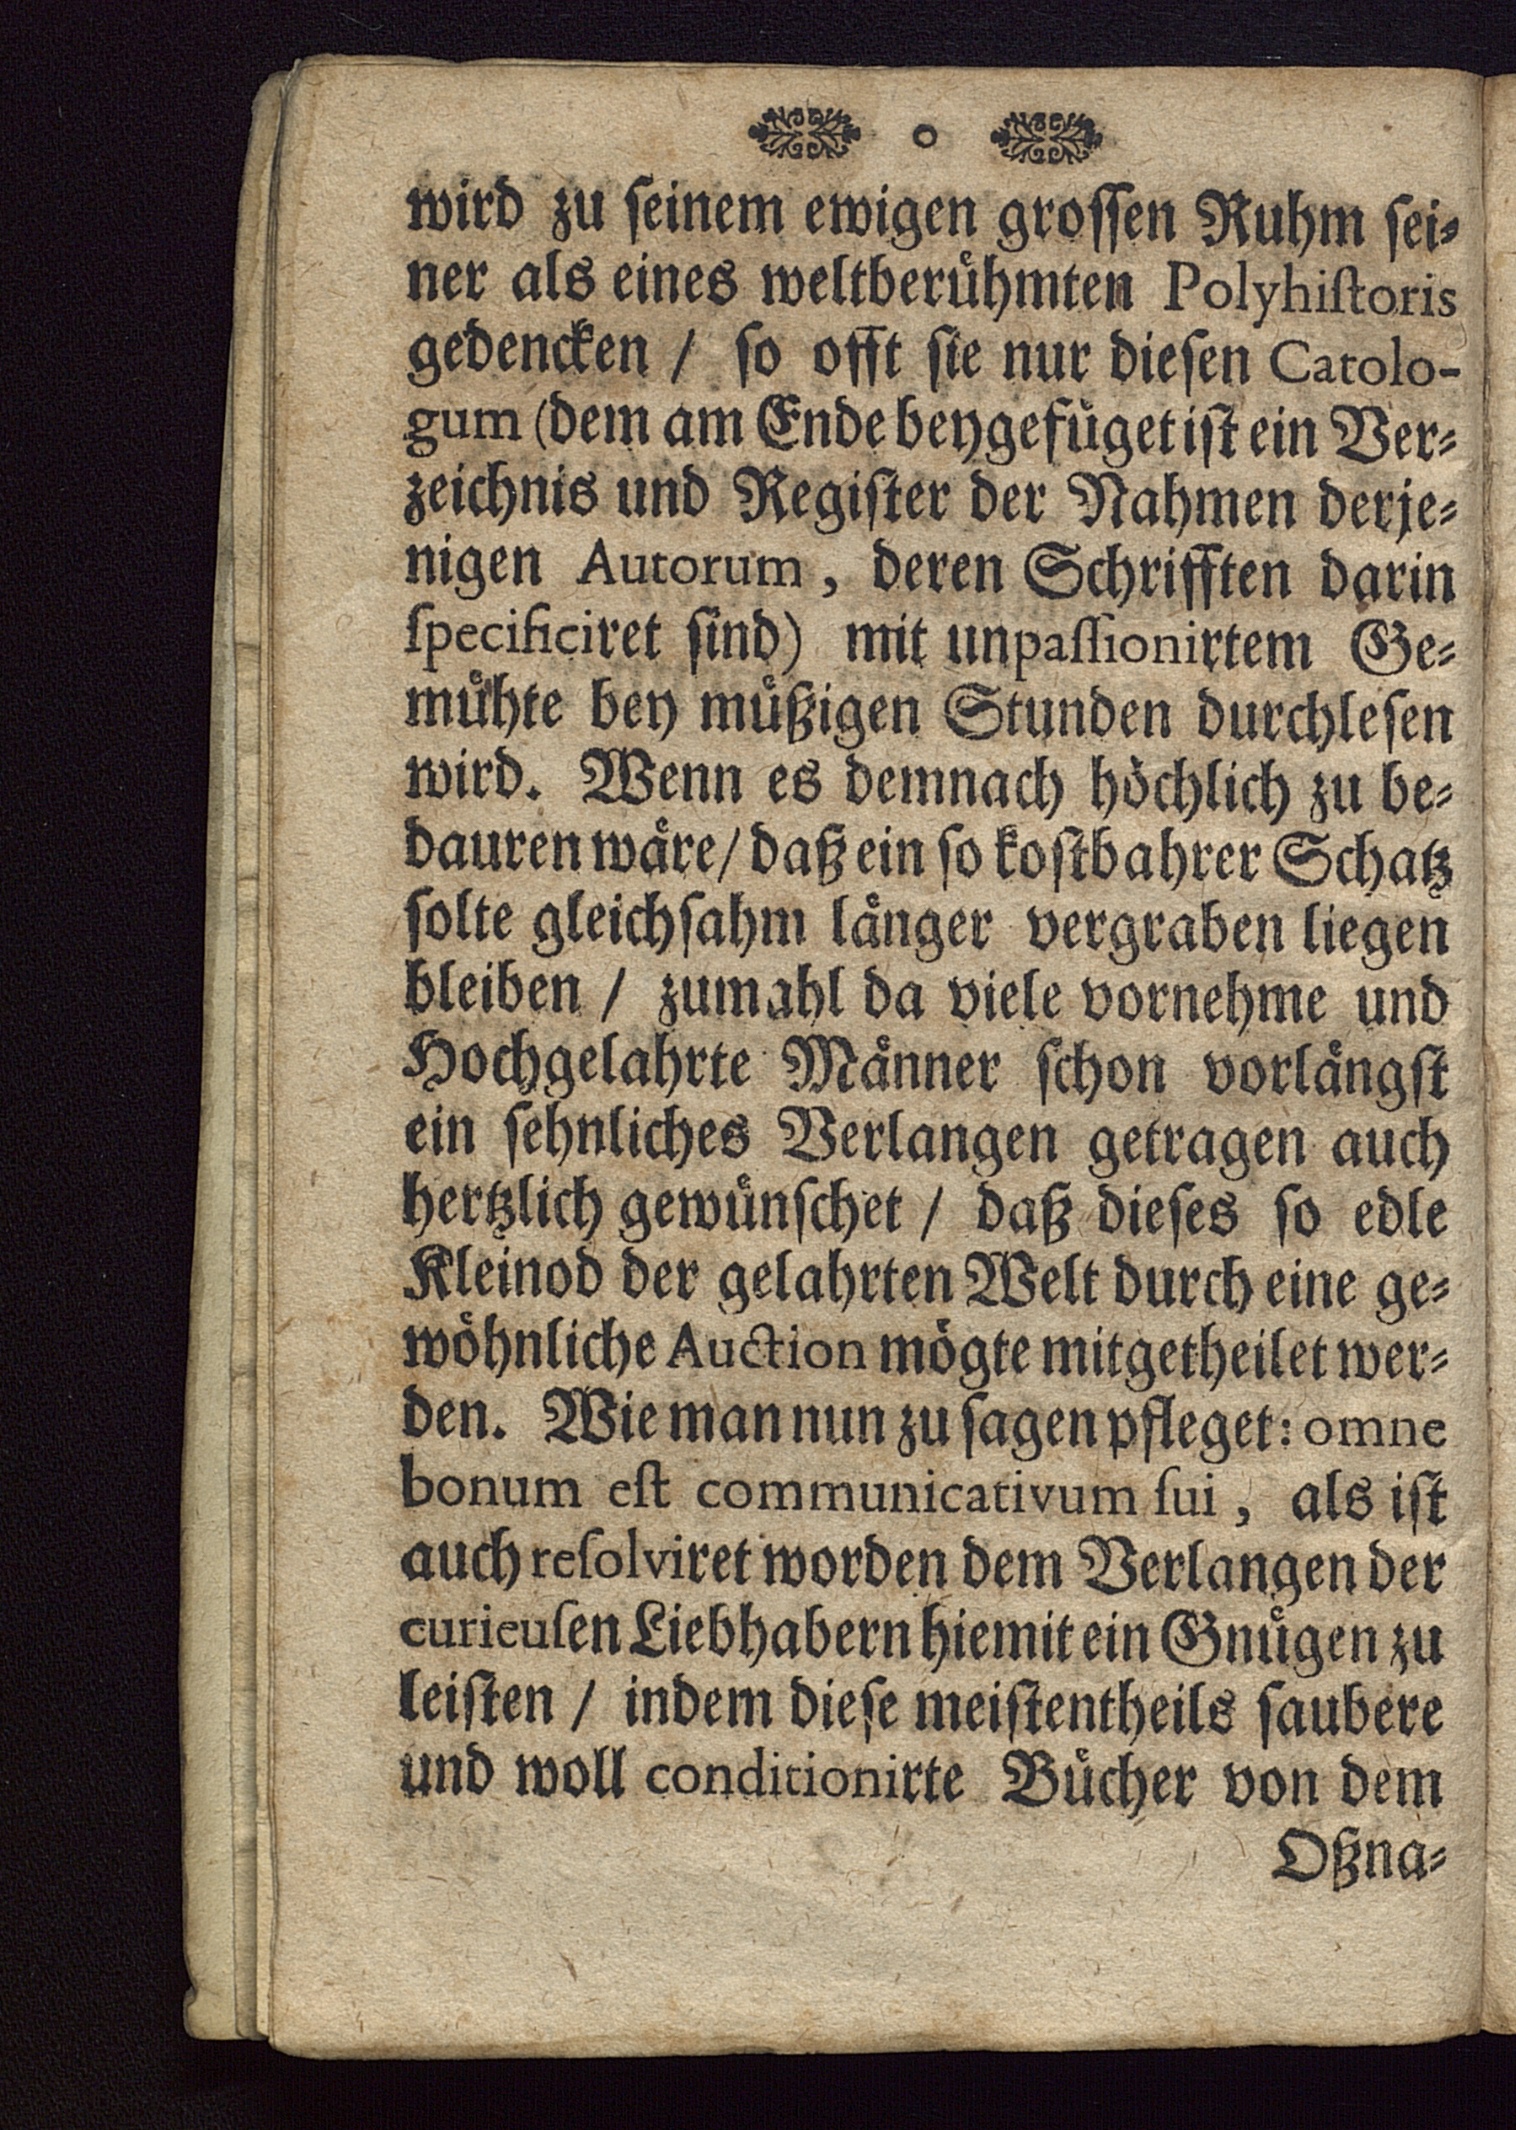 wird zu ſeinem ewigen groſſen Ruhm ſei⸗
ner als eines weltberuͤhmten Polyhiſtoris
gedencken / ſo offt ſie nur dieſen Catolo-
gum (dem am Ende beygefuͤget iſt ein Ver⸗
zeichnis und Regiſter der Nahmen derje⸗
nigen Autorum, deren Schrifften darin
ſpecificiret ſind) mit unpaſſionirtem Ge⸗
muͤhte bey muͤßigen Stunden durchleſen
wird. Wenn es demnach hoͤchlich zu be⸗
dauren waͤre/ daß ein ſo koſtbahrer Schatz
ſolte gleichſahm laͤnger vergraben liegen
bleiben / zumahl da viele vornehme und
Hochgelahrte Maͤnner ſchon vorlaͤngſt
ein ſehnliches Verlangen getragen auch
hertzlich gewuͤnſchet / daß dieſes ſo edle
Kleinod der gelahrten Welt durch eine ge⸗
woͤhnliche Auction moͤgte mitgetheilet wer⸗
den. Wie man nun zu ſagen pfleget: omne
bonum eſt communicativum ſui, als iſt
auch reſolviret worden dem Verlangen der
curieuſen Liebhabern hiemit ein Gnuͤgen zu
leiſten / indem dieſe meiſtentheils ſaubere
und woll conditionirte Buͤcher von dem
Oßna⸗